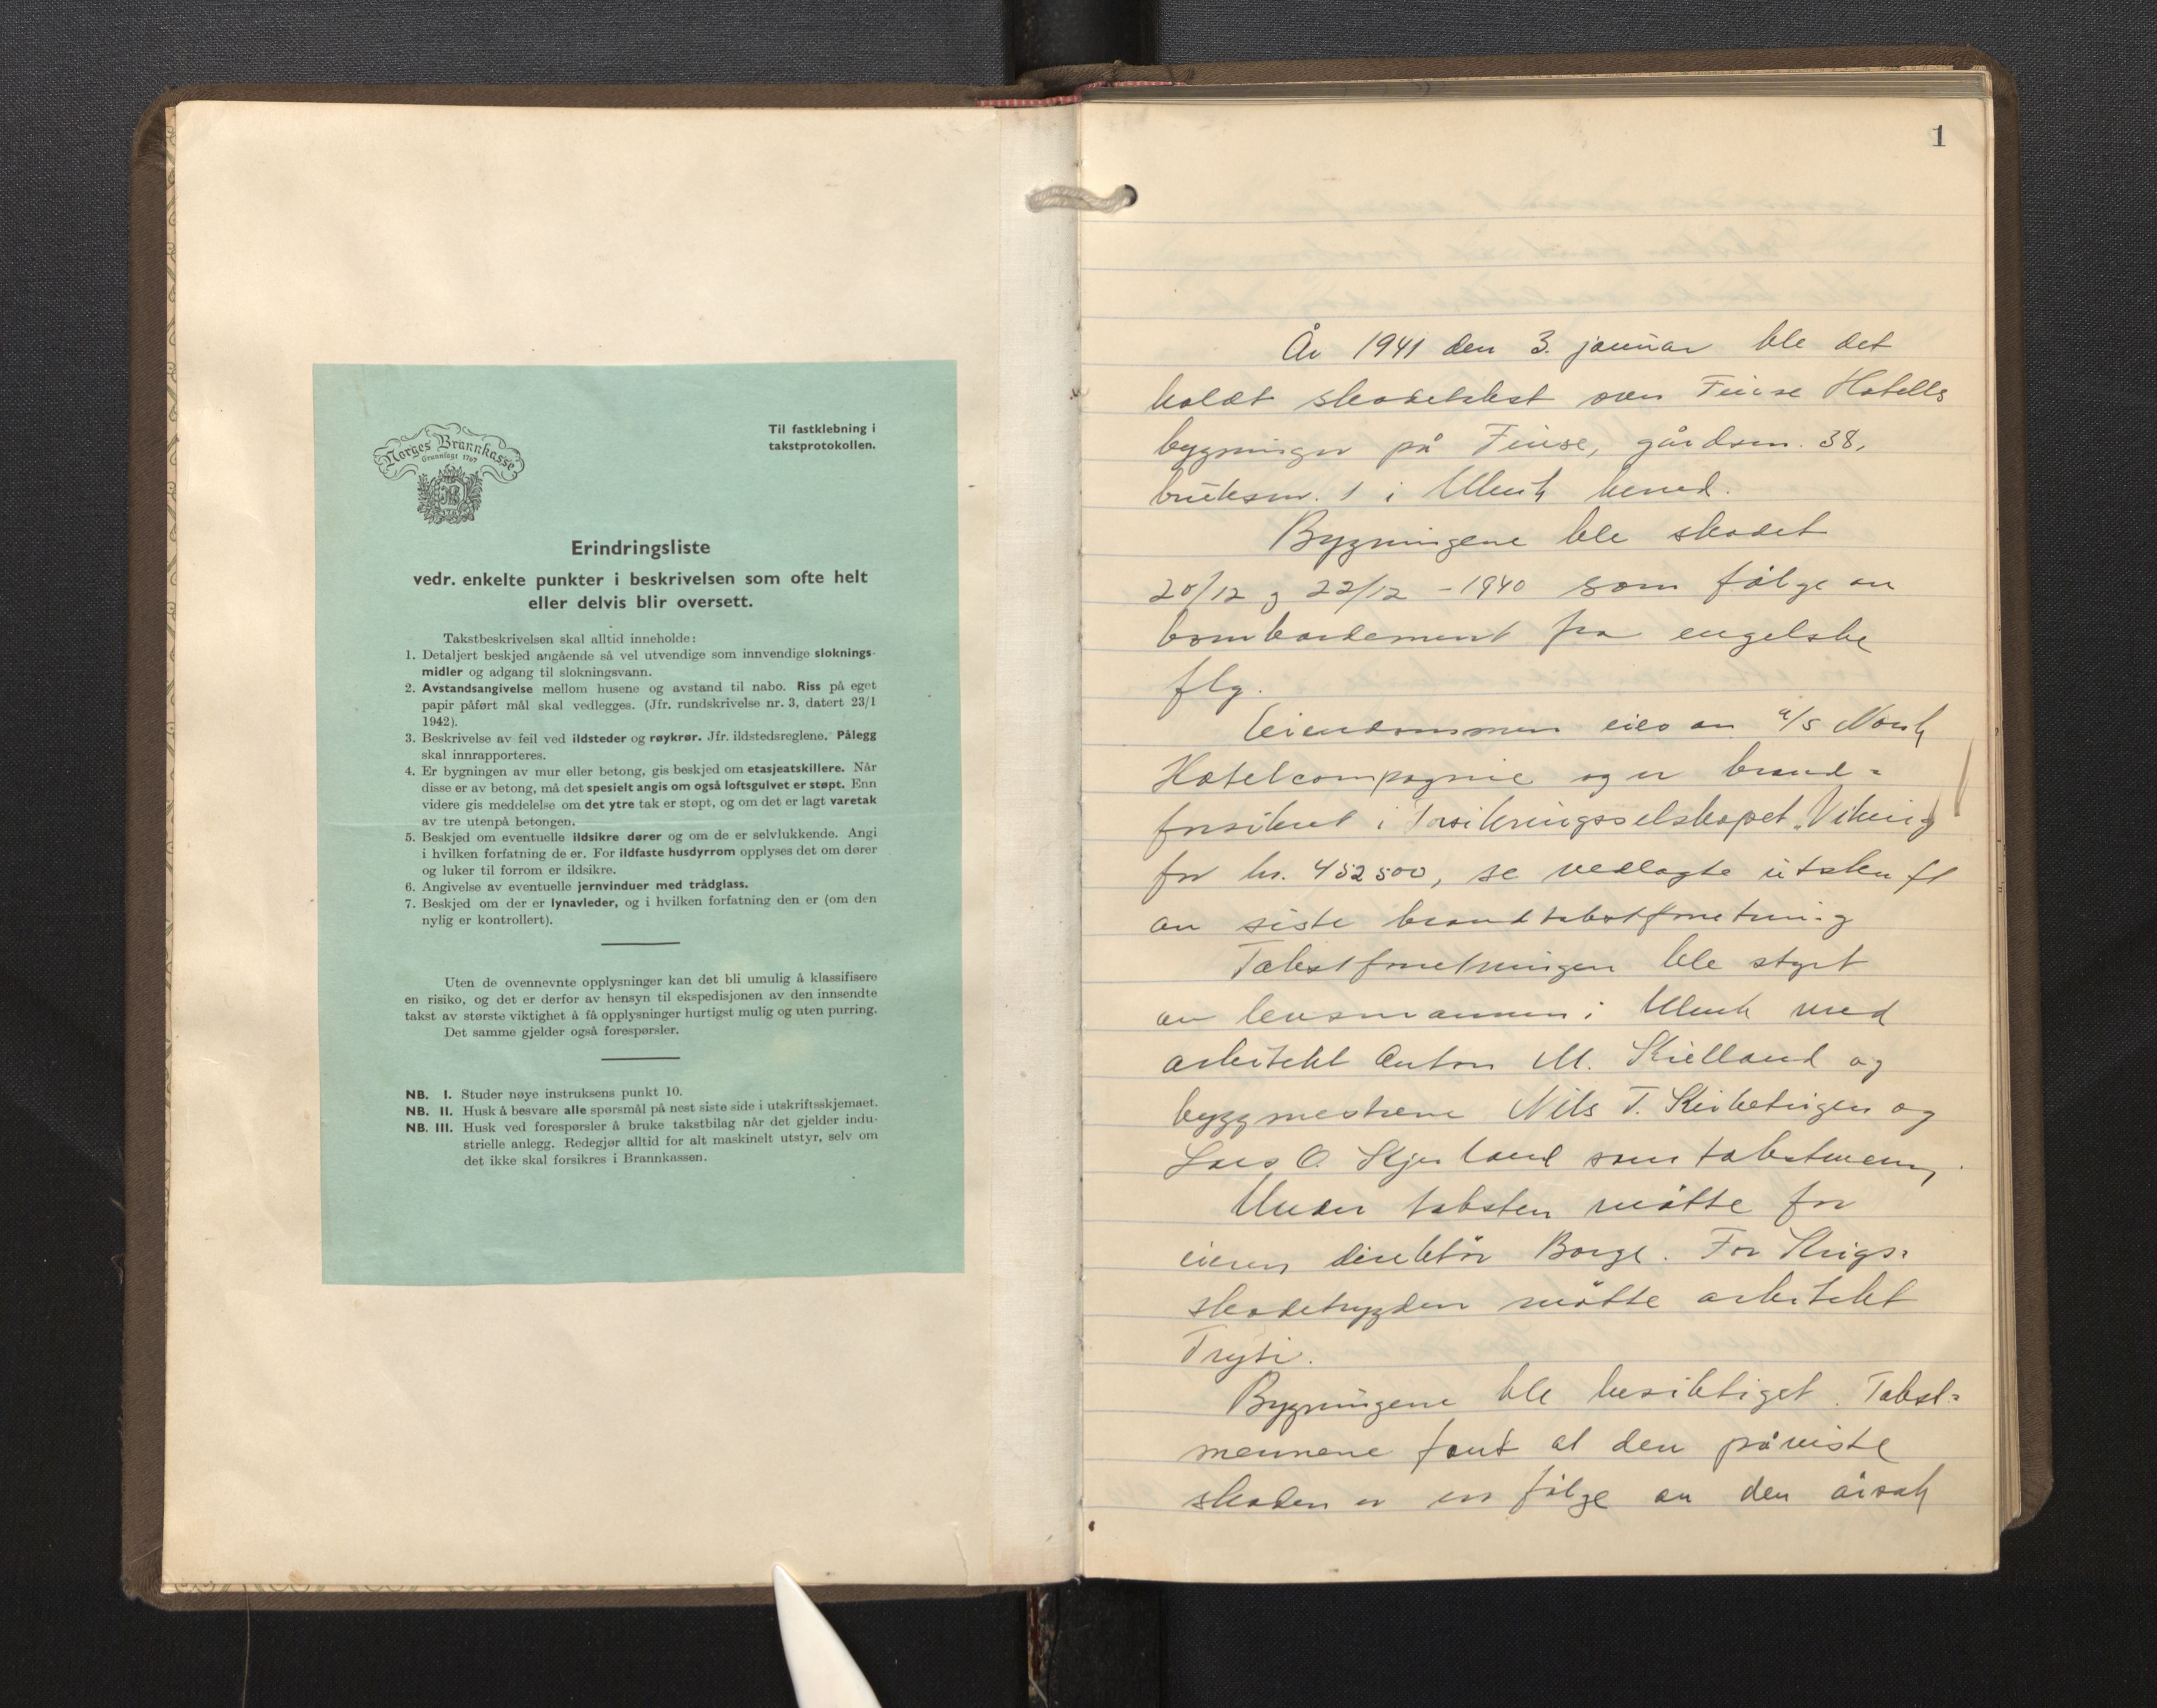 Norges Brannkasse
Grunnlagt 1767
Til fastklebning i
takstprotokollen.
Erindringsliste
vedr. enkelte punkter i beskrivelsen som ofte helt
eller delvis blir oversett.
Takstbeskrivelsen skal alltid inneholde:
1. Detaljert beskjed angående så vel utvendige som innvendige sloknings-
midler og adgang til slokningsvann.
2. Avstandsangivelse mellom husene og avstand til nabo. Riss på eget
papir påført mål skal vedlegges. (Jfr. rundskrivelse nr. 3, datert 23/1
1942).
3. Beskrivelse av feil ved ildsteder og røykrør. Jfr. ildstedsreglene. Pålegg
skal innrapporteres.
4. Er bygningen av mur eller betong, gis beskjed om etasjeatskillere. Når
disse er av betong, må det spesielt angis om også loftsgulvet er støpt. Enn
videre gis meddelelse om det ytre tak er støpt, og om det er lagt varetak
av tre utenpå betongen.
5. Beskjed om eventuelle ildsikre dører og om de er selvlukkende. Angi
i hvilken forfatning de er. For ildfaste husdyrrom opplyses det om dører
og luker til forrom er ildsikre.
6. Angivelse av eventuelle jernvinduer med trådglass.
7. Beskjed om der er lynavleder, og i hvilken forfatning den er (om den
nylig er kontrollert).
Uten de ovennevnte opplysninger kan det bli umulig å klassifisere
en risiko, og det er derfor av hensyn til ekspedisjonen av den innsendte
takst av største viktighet å få opplysninger hurtigst mulig og uten purring.
Det samme gjelder også forespørsler.
NB. I. Studer nøye instruksens punkt 10.
NB. II. Husk å besvare alle spørsmål på nest siste side i utskriftsskjemaet.
NB. III. Husk ved forespørsler å bruke takstbilag når det gjelder indu-
strielle anlegg. Redegjør alltid for alt maskinelt utstyr, selv om
det ikke skal forsikres i Brannkassen.
1
År 1941 den 3. januar ble det
holdt skadetakst over Finse Hotells
bygninger på Finse, gårdsnr. 38,
bruksnr. 1 i Ulvik herred.
Bygningene ble skadet
20/12 og 22/12 - 1940 som følge av
bombardement fra engelske
fly.
Eiendommen eies av a/s Norsk
Hotelcompagnie og er brand=
forsikret i Forsikringsselskapet "Viking
for kr. 452500, se vedlagte utskrift
av siste brandtakstforretning
Takstforretningen ble styrt
av lensmannen i Ulvik med
arkitekt Anton M. Kielland og
byggmestrene Nils T. og
Lars O. Skjerland som takstmenn,
Under taksten møtte for
eieren direktør Borge. For Krigs=
skadetrygden møtte arkitekt
Tryti.
Bygningene ble besiktiget. Takst=
mennene fant at den påviste
skaden er en følge av den årsak